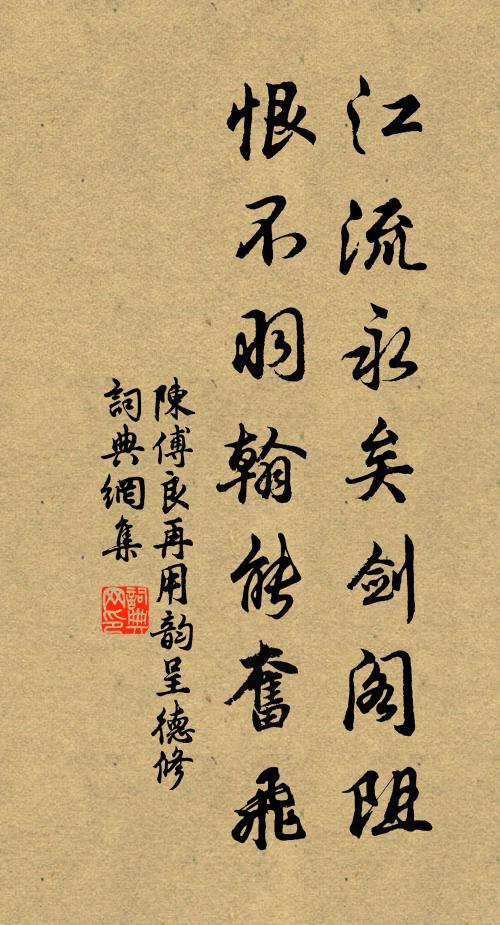 江流永矣劍阁阻
恨不羽翰能奮飛
陳傅良再用韵呈德修
詞典網集
詞典网印